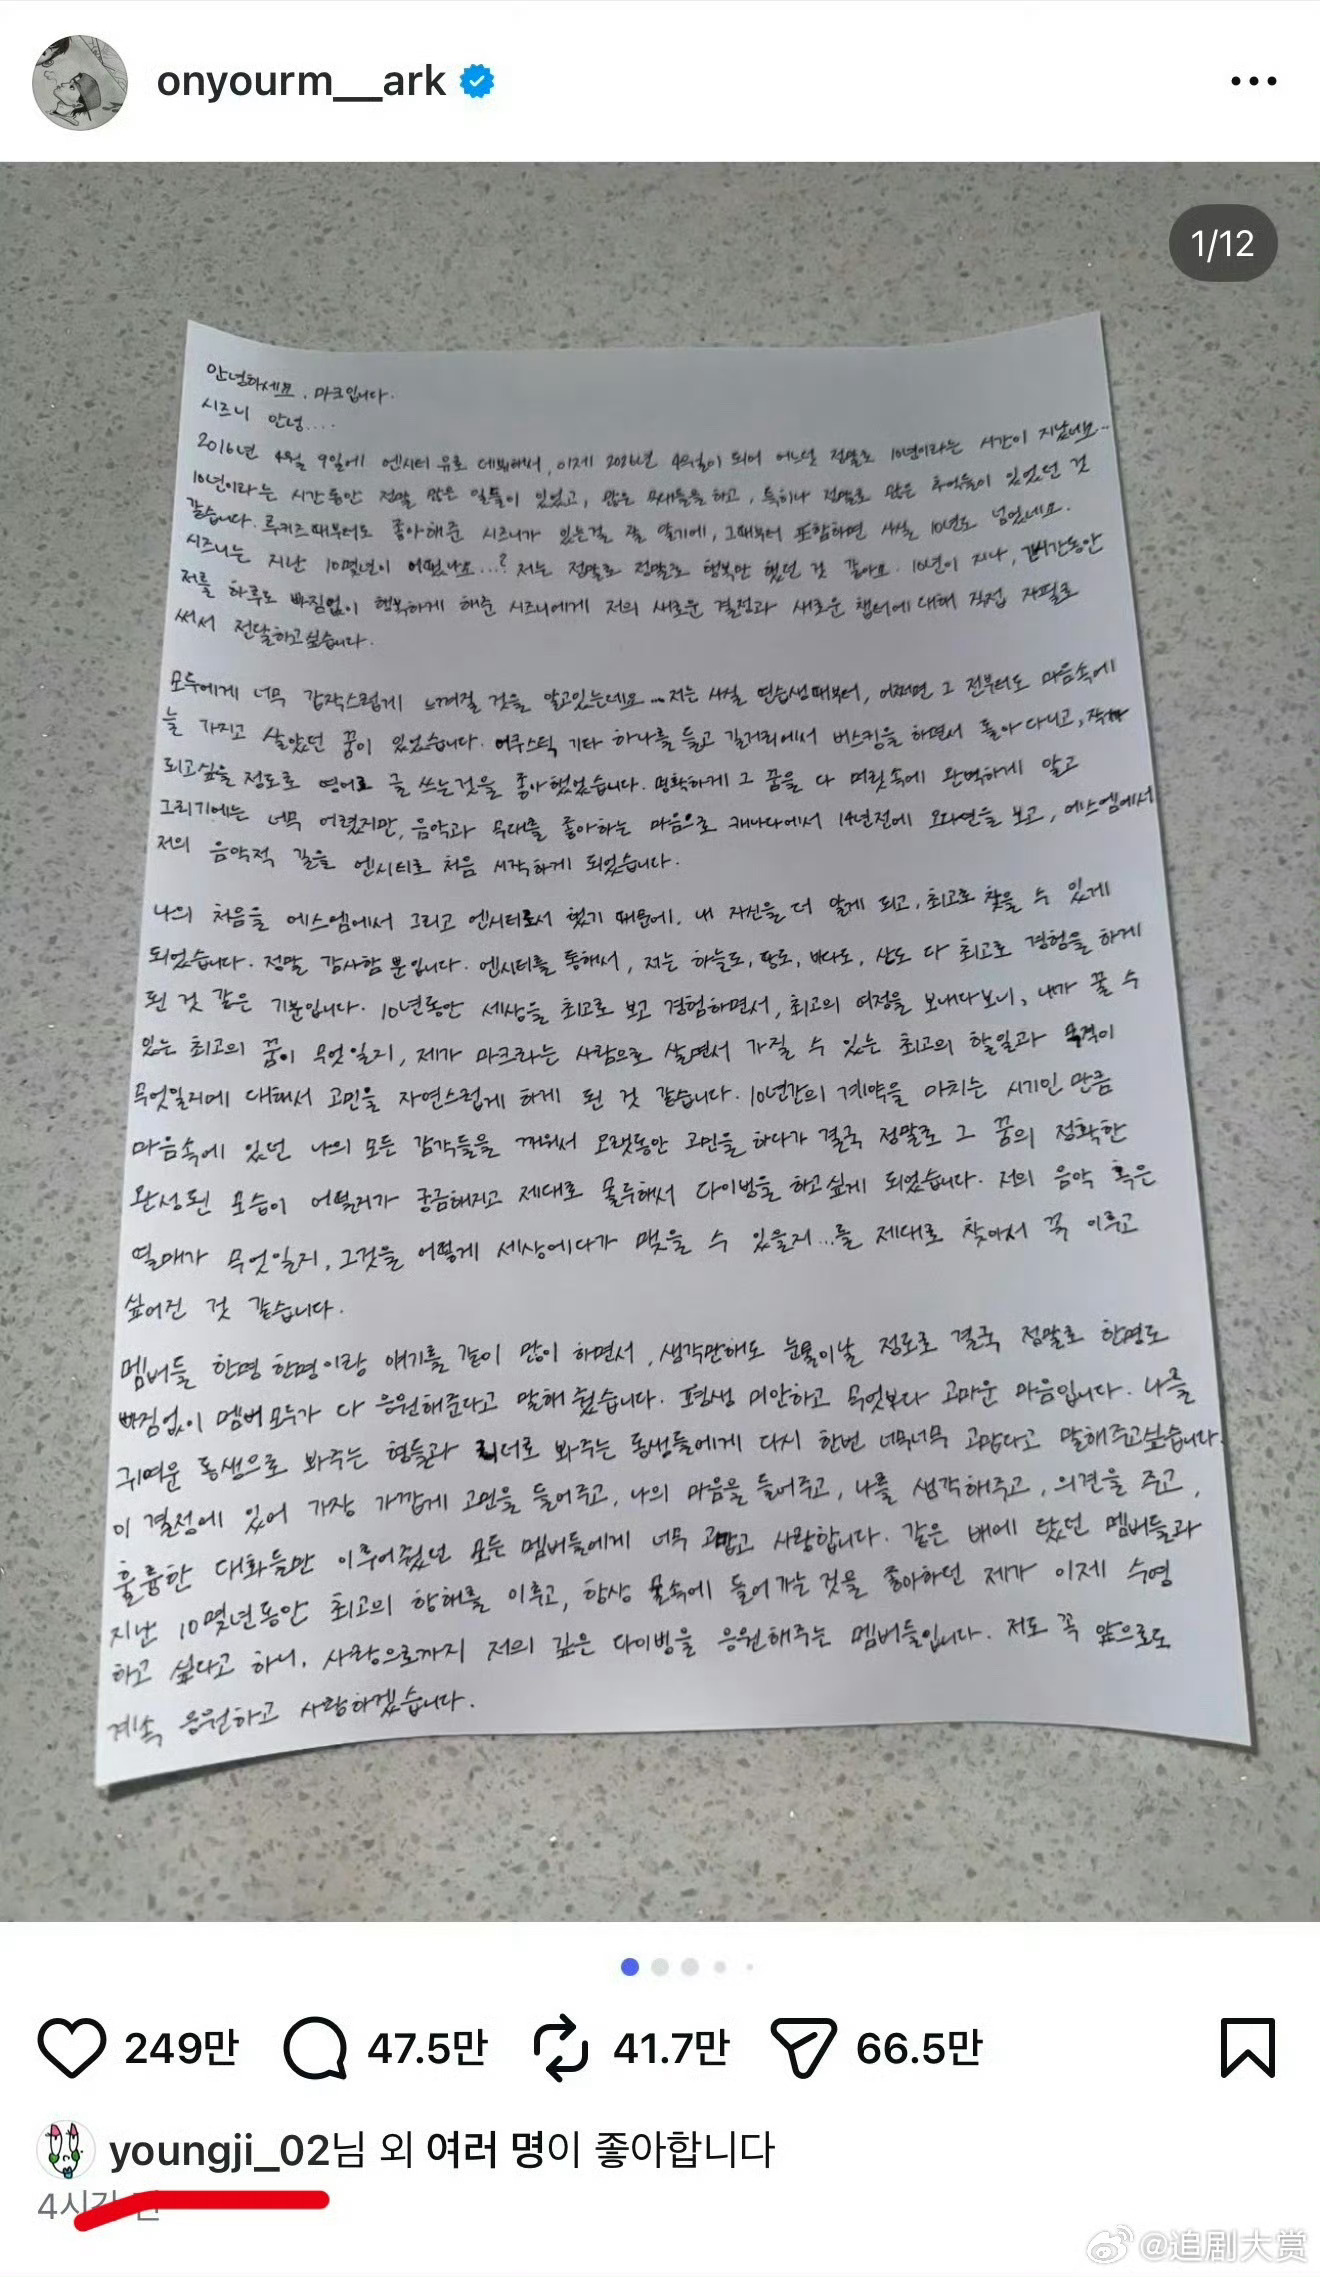 onyourm__ark
1/12
안녕하세요. 마크입니다.
시즈니 안녕....
2016년 4월 9일에 엔시티 유로 데뷔하며, 이제 2026년 4월이 되어 어느덧 정말로 10년이라는 시간이 지났네요...
10년이라는 시간동안 정말 많은 일들이 있었고, 많은 무대들을 하고, 특히나 정말로 많은 추억들이 있었던 것
같습니다. 루키즈때부터도 좋아해준 시즈니가 있는걸 잘 알기에, 그때부터 포함하면 사실 10년도 넘었네요.
시즈니는 지난 10몇년이 어땠나요...? 저는 정말로 정말로 행복만 했던 것 같아요. 10년이 지나, 긴시간동안
저를 하루도 빠짐없이 행복하게 해준 시즈니에게 저의 새로운 결정과 새로운 챕터에 대해 직접 자필로
써서 전달하고싶습니다.
모두에게 너무 갑작스럽게 느껴질 것을 알고있는데요...저는 사실 연습생때부터, 어쩌면 그 전부터도 마음속에
늘 가지고 살았던 꿈이 있었습니다. 어쿠스틱 기타 하나를 들고 길거리에서 버스킹을 하면서 돌아다니고, 작가
되고싶을 정도로 영어로 글 쓰는것을 좋아했었습니다. 명확하게 그 꿈을 다 머릿속에 완벽하게 알고
그리기에는 너무 어렸지만, 음악과 무대를 좋아하는 마음으로 캐나다에서 14년전에 오디션을 보고, 에스엠에서
저의 음악적 길을 엔시티로 처음 시작하게 되었습니다.
나의 처음을 에스엠에서 그리고 엔시티로서 했기 때문에, 내 자신을 더 알게 되고, 최고로 찾을 수 있게
되었습니다. 정말 감사함 뿐입니다. 엔시티를 통해서, 저는 하늘도, 땅도, 바다도, 산도 다 최고로 경험을 하게
된 것 같은 기분입니다. 10년동안 세상을 최고로 보고 경험하면서, 최고의 여정을 보내다보니, 내가 꿀 수
있는 최고의 꿈이 무엇일지, 제가 마크라는 사람으로 살면서 가질 수 있는 최고의 할일과 목적이
무엇일지에 대해서 고민을 자연스럽게 하게 된 것 같습니다. 10년간의 계약을 마치는 시기인 만큼
마음속에 있던 나의 모든 감각들을 깨워서 오랫동안 고민을 하다가 결국 정말로 그 꿈의 정확한
완성된 모습이 어떨지가 궁금해지고 제대로 몰두해서 다이빙을 하고싶게 되었습니다. 저의 음악 혹은
열매가 무엇일지, 그것을 어떻게 세상에다가 맺을 수 있을지...를 제대로 찾아서 꼭 이루고
싶어진 것 같습니다.
멤버들 한명 한명이랑 얘기를 같이 많이 하면서, 생각만해도 눈물이날 정도로 결국 정말로 한명도
빠짐없이 멤버 모두가 다 응원해준다고 말해 줬습니다. 평생 미안하고 무엇보다 고마운 마음입니다. 나를
귀여운 동생으로 봐주는 형들과 리더로 봐주는 동생들에게 다시 한번 너무너무 고맙다고 말해주고싶습니다.
이 결정에 있어 가장 가깝게 고민을 들어주고, 나의 마음을 들어주고, 나를 생각해주고, 의견을 주고,
훌륭한 대화들만 이루어줬던 모든 멤버들에게 너무 고맙고 사랑합니다. 같은 배에 탔던 멤버들과
지난 10몇년동안 최고의 항해를 이루고, 항상 물속에 들어가는 것을 좋아하던 제가 이제 수영
하고 싶다고 하니, 사랑으로까지 저의 깊은 다이빙을 응원해주는 멤버들입니다. 저도 꼭 앞으로도
계속 응원하고 사랑하겠습니다.
249만 47.5만 41.7만 66.5만
youngji_02님 외 여러 명이 좋아합니다
4시간 전
@追剧大赏